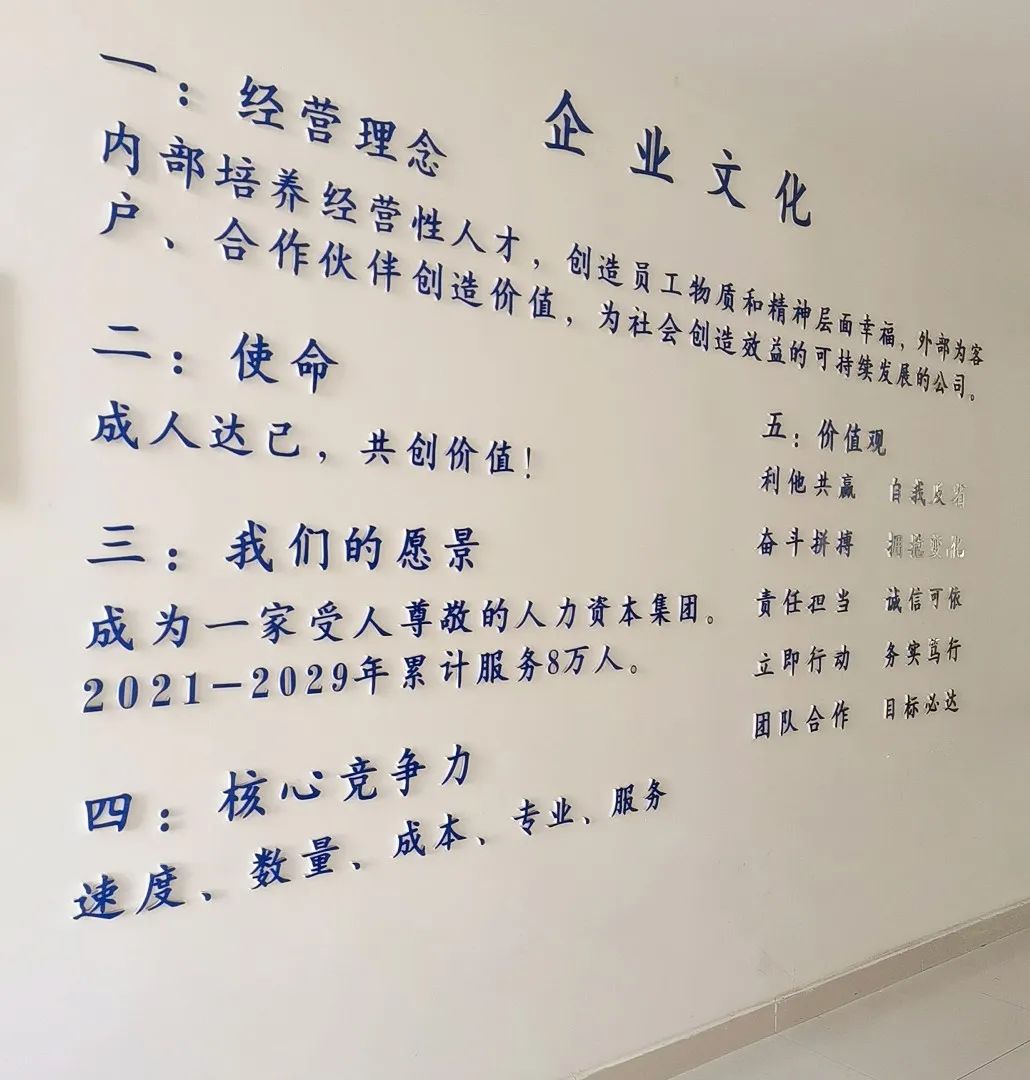 企业文化
一：经营理念
内部培养经营性人才，创造员工物质和精神层面幸福，外部为客
户、合作伙伴创造价值，为社会创造效益的可持续发展的公司。
二：使命
成人达己，共创价值！
三：我们的愿景
成为一家受人尊敬的人力资本集团。
2021-2029年累计服务8万人。
四：核心竞争力
速度、数量、成本、专业、服务
五：价值观
利他共赢 自我反省
奋斗拼搏 拥抱变化
责任担当 诚信可依
立即行动 务实笃行
团队合作 目标必达